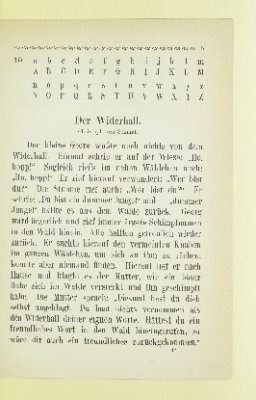 a b c d e f g h i j k l m
A B C D E F G H I J K L M
n o p q r s t u v w x y z
N O P Q R S T U V W X Y Z
Der Widerhall.
Der kleine Georg wußte noch nichts von dem
Widerhall. Einmal schrie er auf der Wiese: „Ho,
hopp!“ Sogleich rief's im nahen Wäldchen auch:
„Ho, hopp!“ Er rief hierauf verwundert: „Wer bist
du?“ Die Stimme rief auch: „Wer bist du?“ Er
schrie: „Du bist ein dummer Junge!“ und „dummer
Junge!“ hallte es aus dem Walde zurück. Georg
ward ärgerlich und rief immer ärgere Schimpfnamen
in den Wald hinein. Alle hallten getreulich wieder
zurück. Er suchte hierauf den vermeinten Knaben
im ganzen Wäldchen, um sich an ihm zu rächen,
konnte aber niemand finden. Hierauf lief er nach
Hause und klagte es der Mutter, wie ein böser
Bube sich im Walde versteckt und ihn geschimpft
habe. Die Mutter sprach: „Diesmal hast du dich
selbst angeklagt. Du hast nichts vernommen als
den Widerhall deiner eignen Worte. Hättest du ein
freundliches Wort in den Wald hineingerufen, so
wäre dir auch ein freundliches zurückgekommen.“